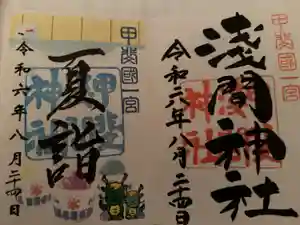 甲斐國一宮
浅間神社
令和六年八月二十四日
甲斐國一宮
夏詣
令和六年八月二十四日